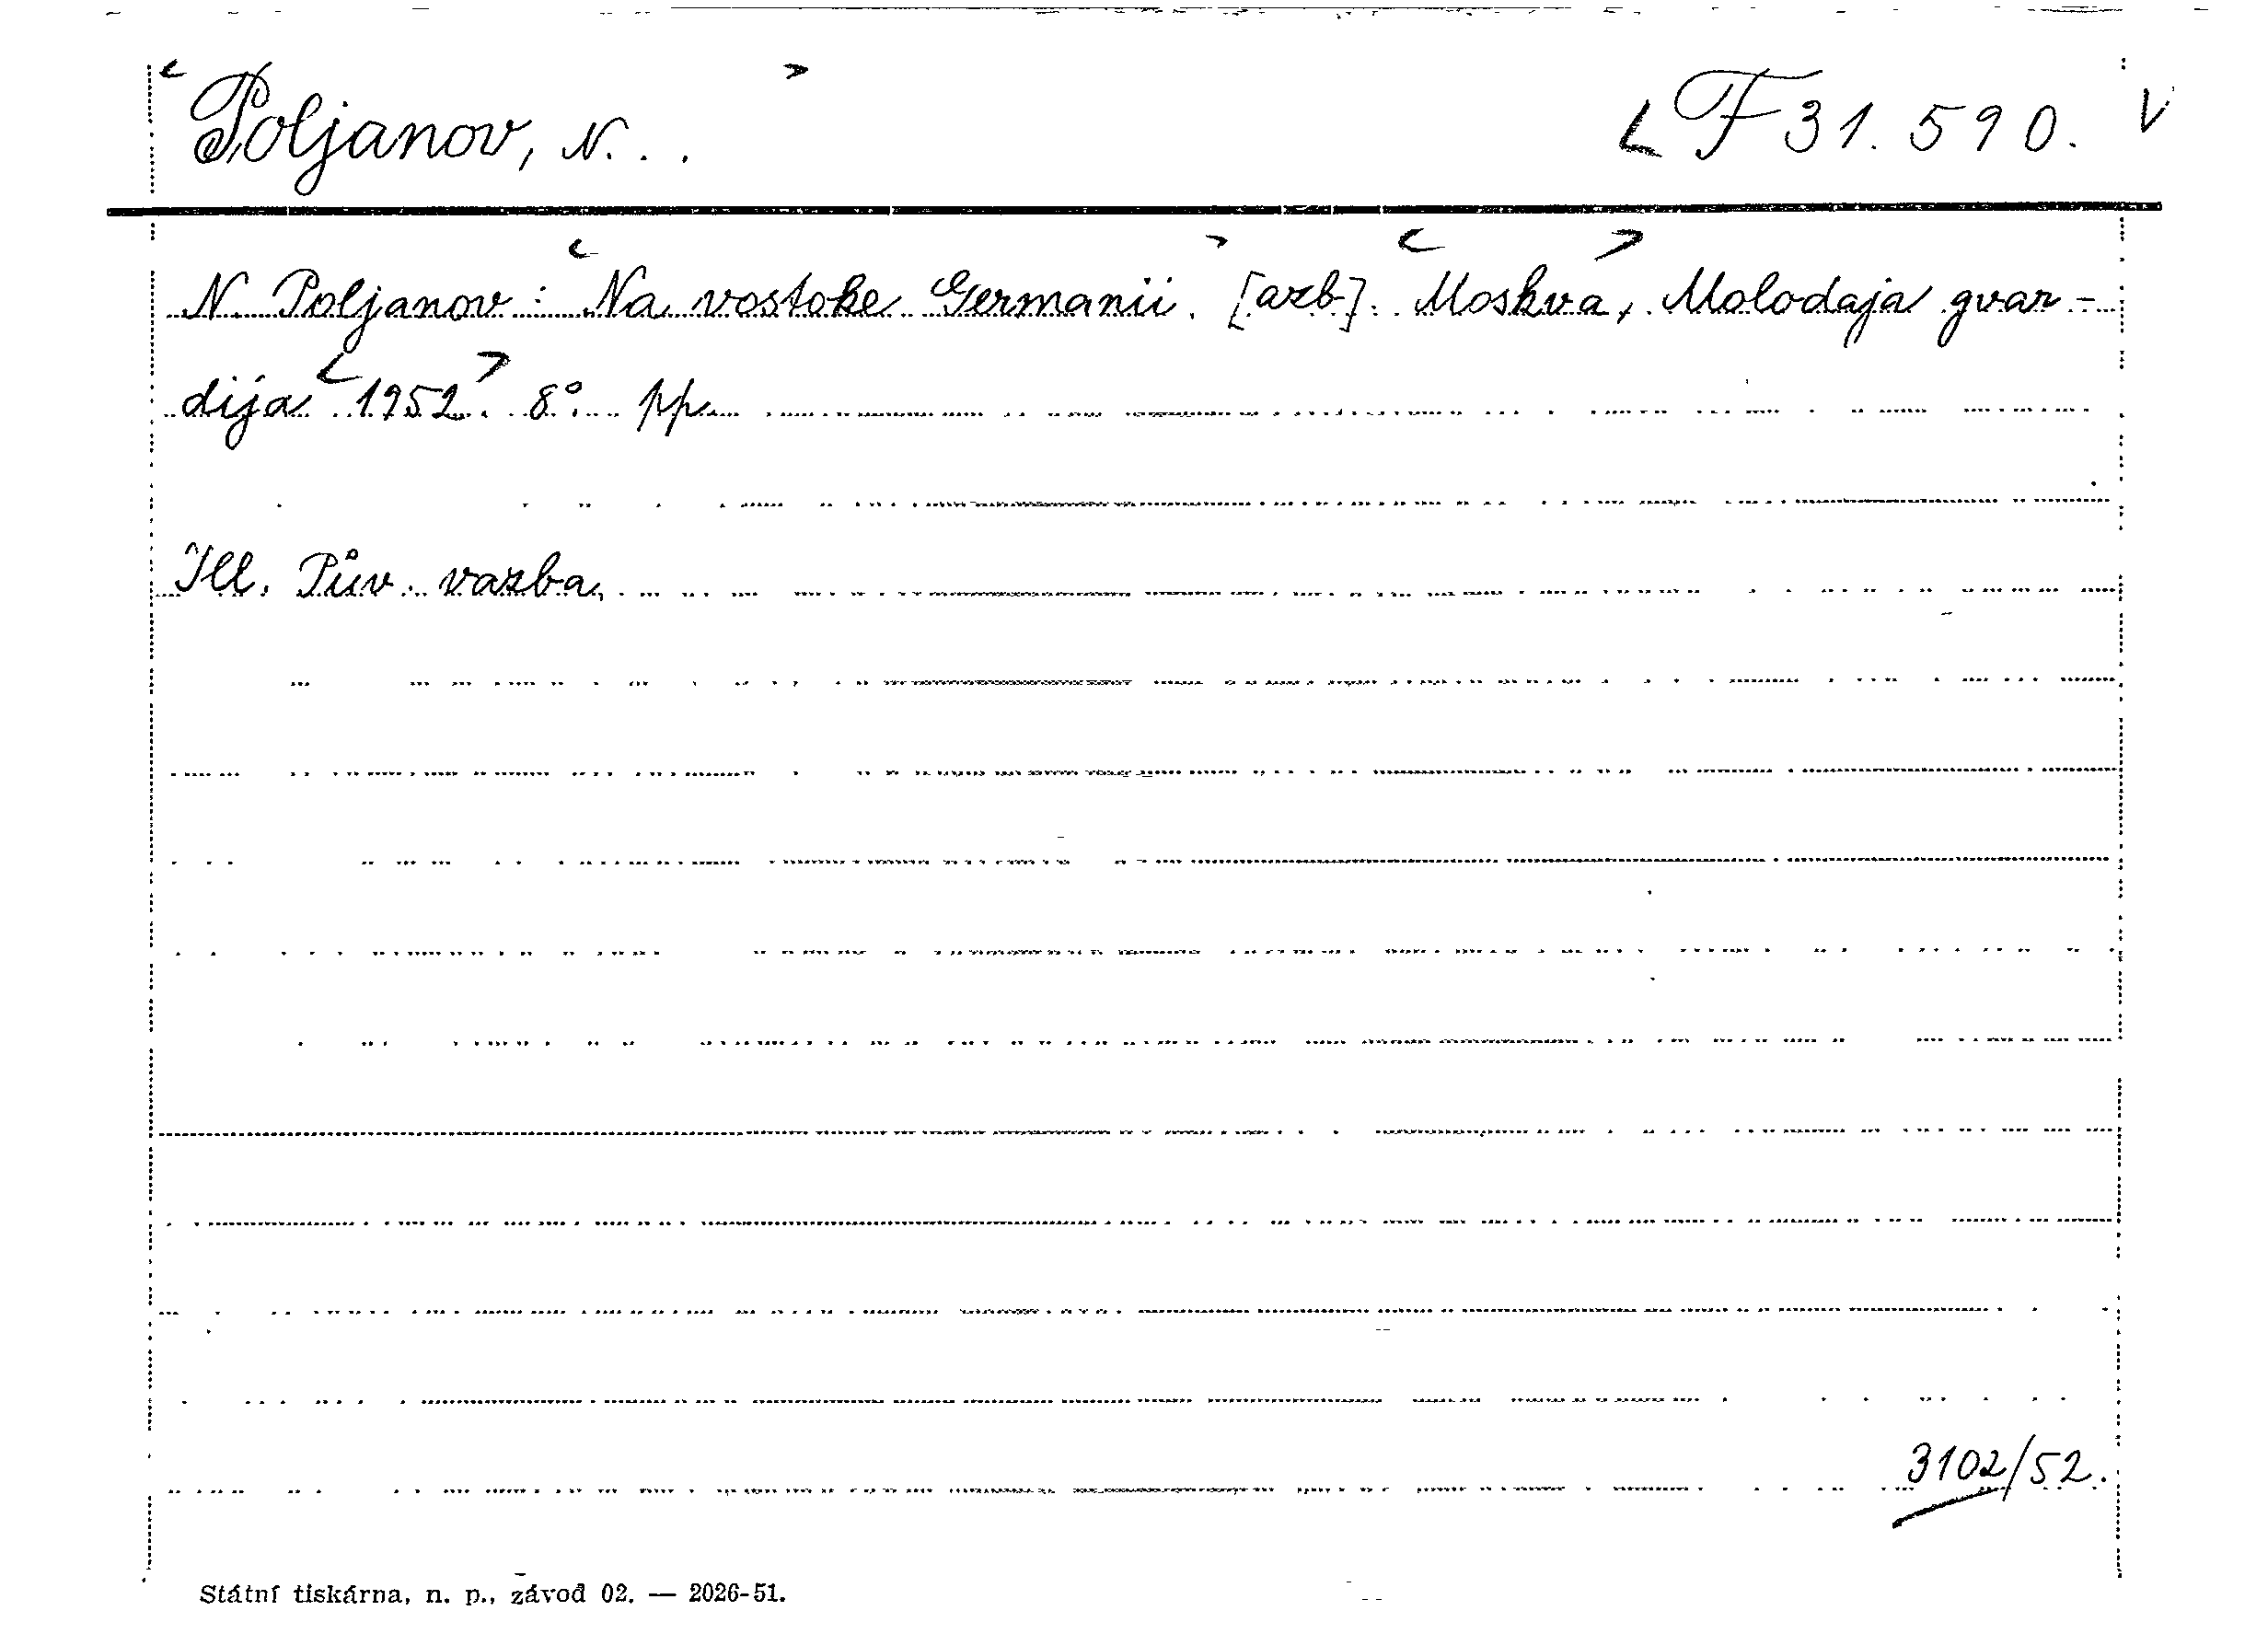 Poljanov, N. . .
F 31.590. V
N. Poljanov: Na vostoke Germanii. [azb]. Moskva, Molodaja gvar-
dija 1952. 8°. pp.
Ill. Pův. vazba.
3102/52.
Státní tiskárna, n. p., závod 02. — 2026-51.